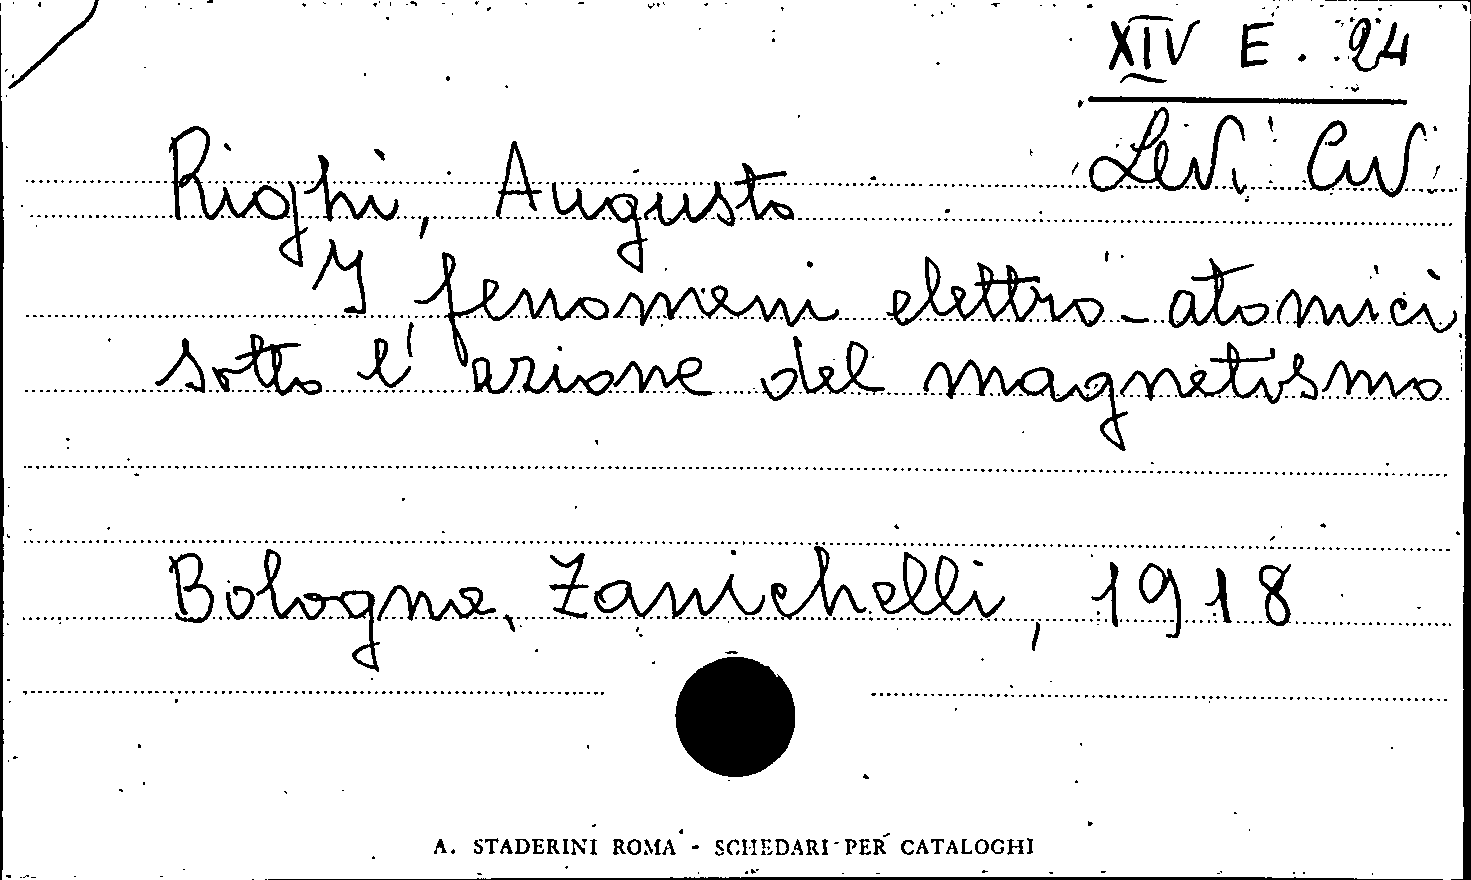 XIV E. 24
Levi. Civ.
Righi, Augusto
I fenomeni elettro-atomici
sotto l'azione del magnetismo
Bologna, Zanichelli, 1918
A. STADERINI ROMA - SCHEDARI PER CATALOGHI